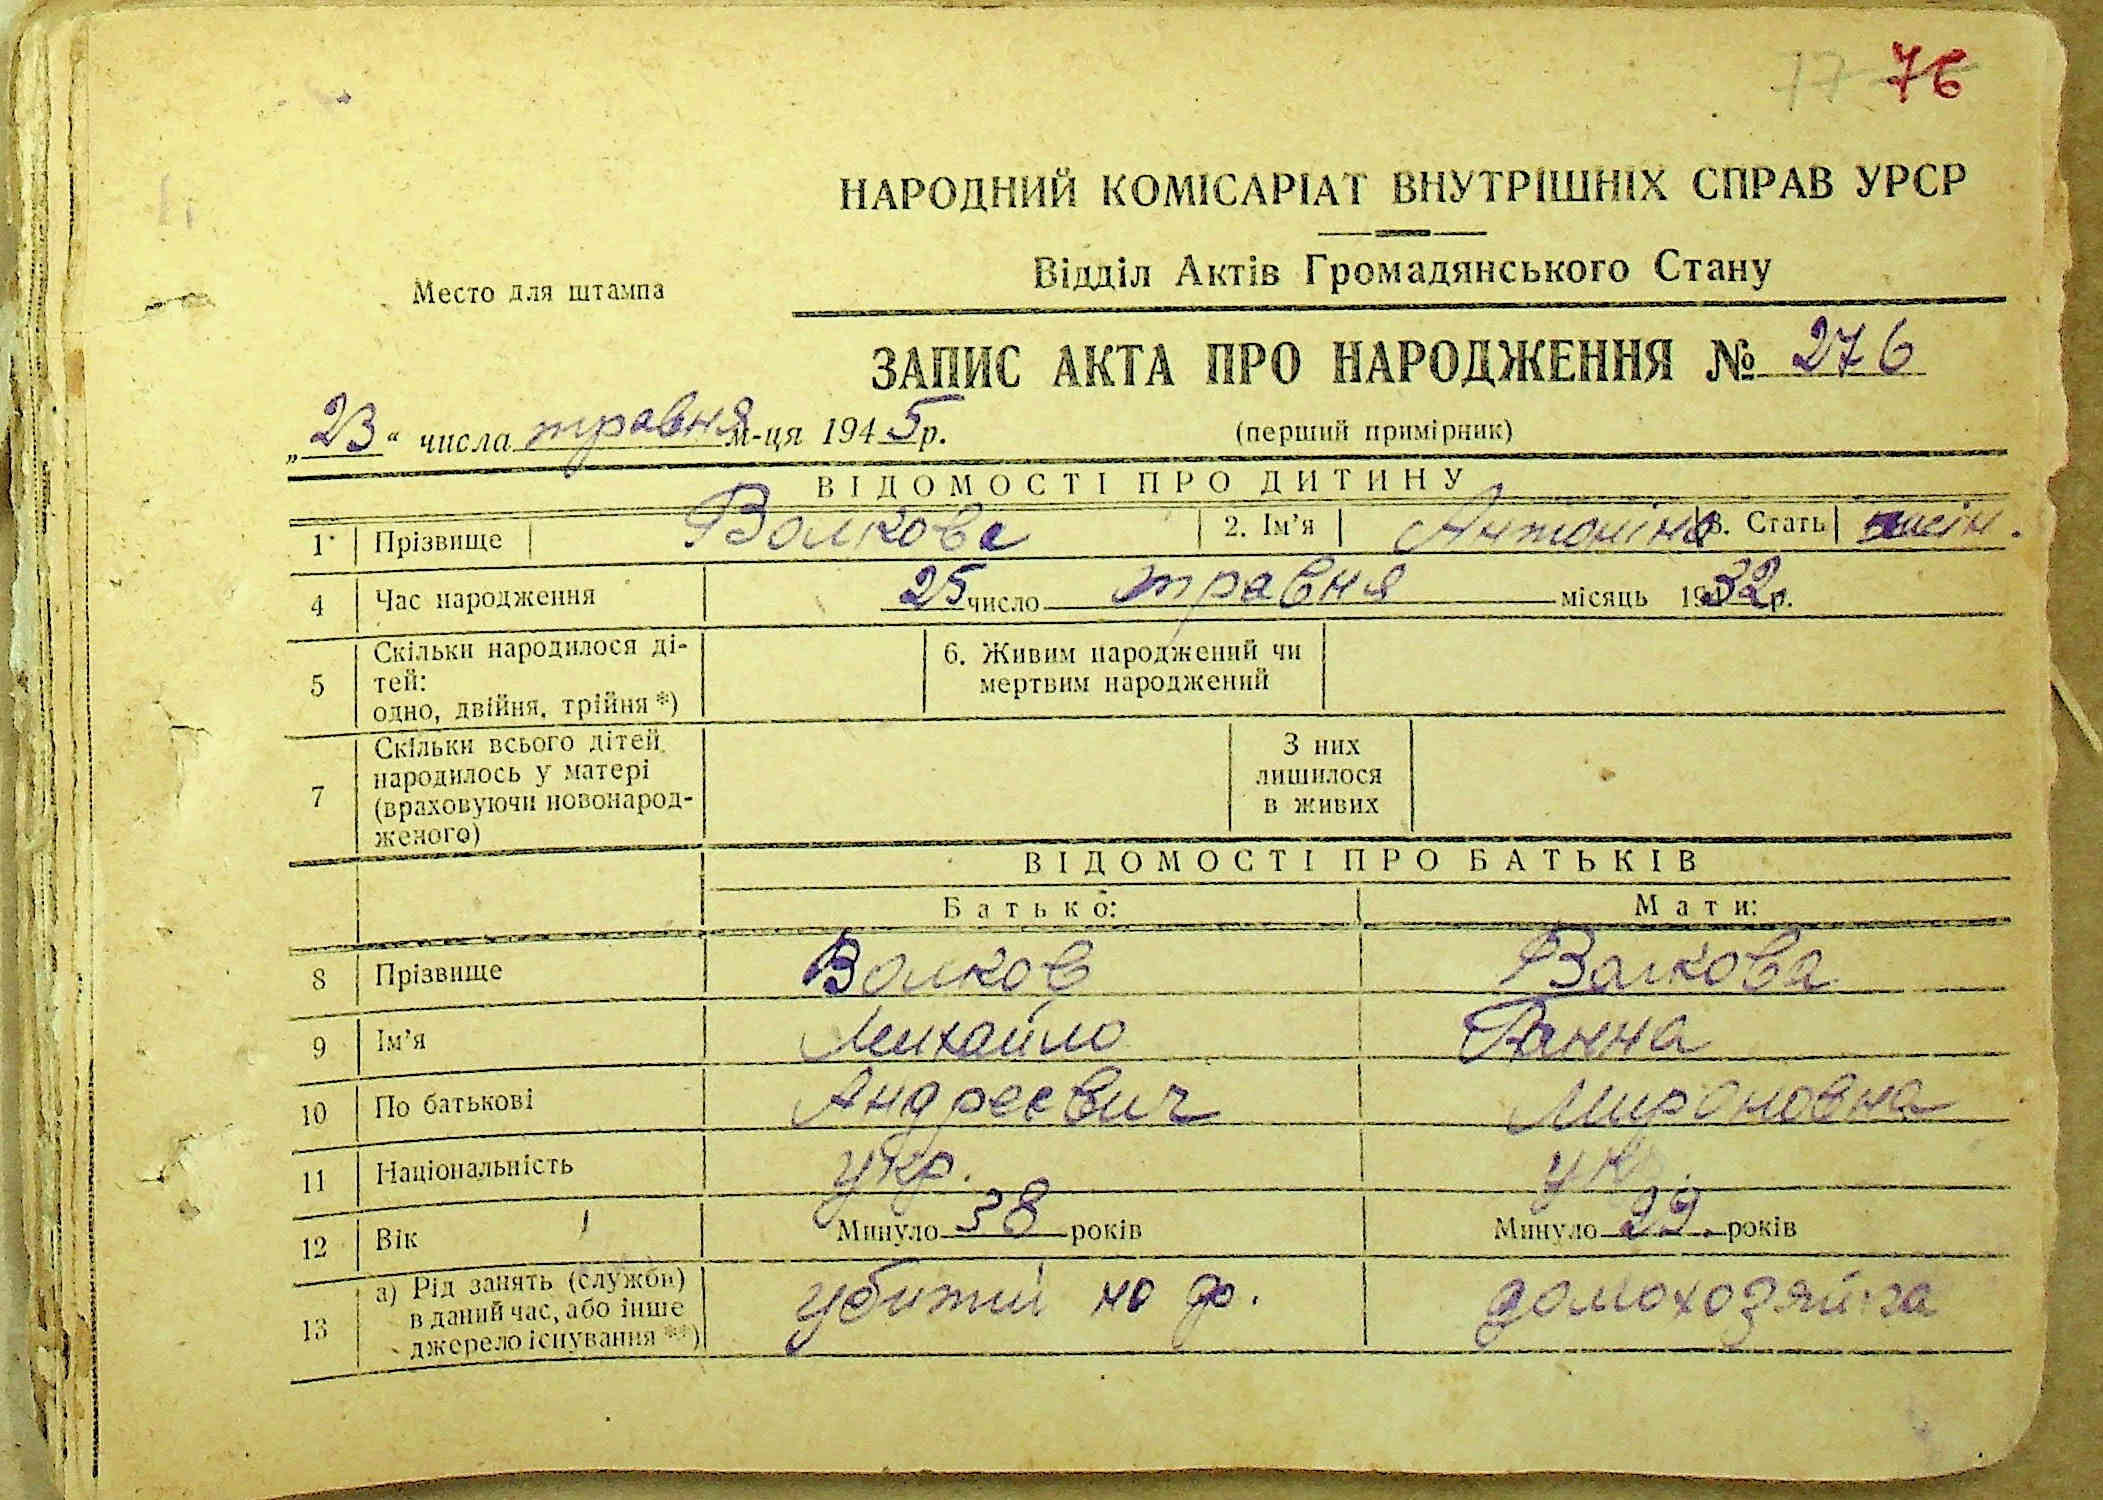 17 76
НАРОДНИЙ КОМІСАРІАТ ВНУТРІШНІХ СПРАВ УРСР
Место для штампа
Відділ Актів Громадянського Стану
ЗАПИС АКТА ПРО НАРОДЖЕННЯ № 276
„23“ числа травня м-ця 1945 р.
(перший примірник)
ВІДОМОСТІ ПРО ДИТИНУ
1 Прізвище Волкова 2. Ім’я Антоніна 3. Стать жін.
4 Час народження 25 число травня місяць 1932 р.
5 Скільки народилося ді-
тей:
одно, двійня, трійня *)
6. Живим народжений чи
мертвим народжений
7 Скільки всього дітей
народилось у матері
(враховуючи новонарод-
женого)
З них
лишилося
в живих
ВІДОМОСТІ ПРО БАТЬКІВ
Батько: Мати:
8 Прізвище Волков Волкова
9 Ім’я Михайло Ганна
10 По батькові Андреевич Мироновна
11 Національність укр. укр.
12 Вік Минуло 38 років Минуло 29 років
13 а) Рід занять (служби)
в даний час, або інше
джерело існування **)
убитий на ф. домохозяйка